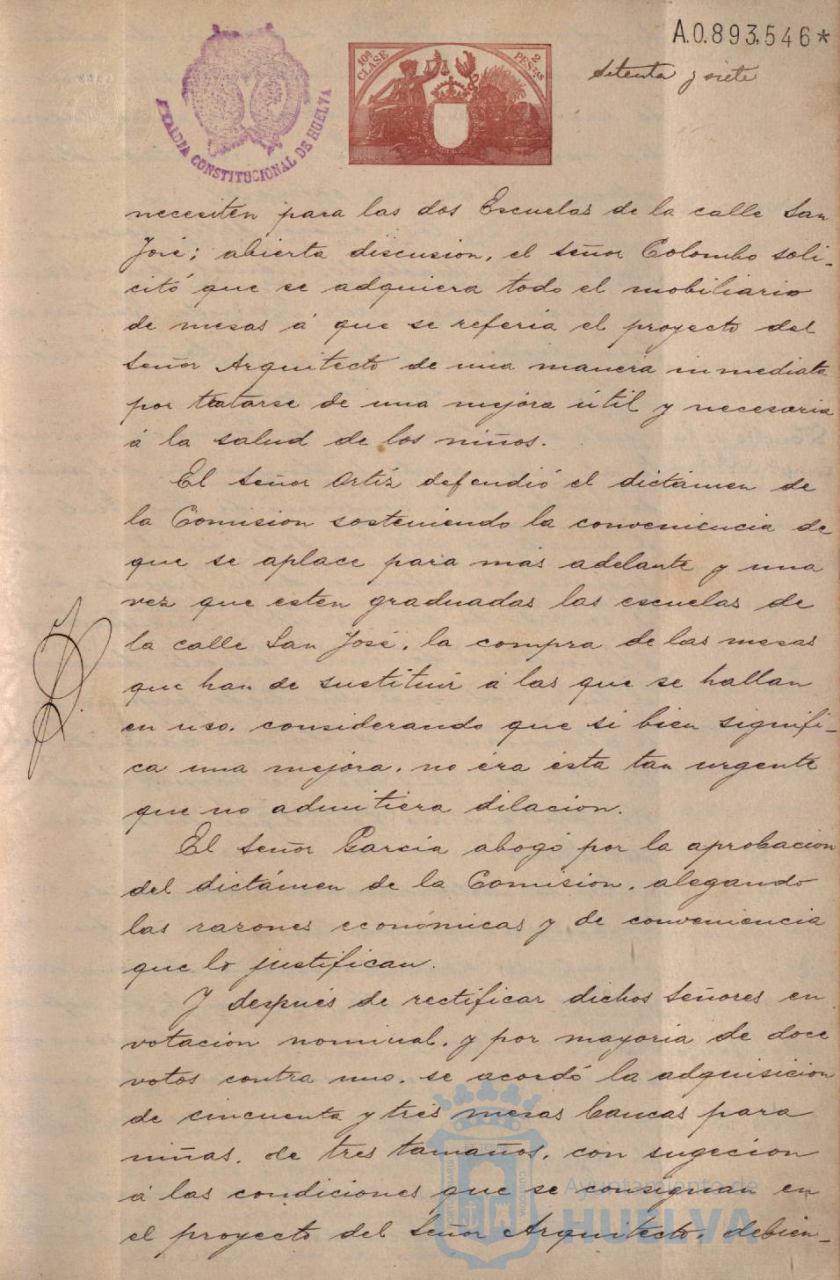 A.0.893,546*
10ª CLASE
2 PESETAS
Setenta y siete
ALCALDIA CONSTITUCIONAL DE HUELVA
necesiten para las dos Escuelas de la calle San
José; abierta discusion, el señor Colombo soli-
citó que se adquiera todo el mobiliario
de mesas á que se referia el proyecto del
señor Arquitecto de una manera inmediata
por tratarse de una mejora útil y necesaria
á la salud de los niños.
El señor Ortíz defendió el dictámen de
la Comision sosteniendo la conveniencia de
que se aplace para más adelante y una
vez que esten graduadas las escuelas de
la calle San José, la compra de las mesas
que han de sustituir á las que se hallan
en uso, considerando que si bien signifi-
ca una mejora, no era ésta tan urgente
que no admitiera dilacion.
El señor Garcia abogó por la aprobacion
del dictámen de la Comision, alegando
las razones económicas y de conveniencia
que lo justifican.
Y después de rectificar dichos señores en
votacion nominal, y por mayoria de doce
votos contra uno, se acordó la adquisicion
de cincuenta y tres mesas bancas para
niñas, de tres tamaños, con sugecion
á las condiciones que se consignan en
el proyecto del Señor Arquitecto, debien-
Ayuntamiento de
HUELVA